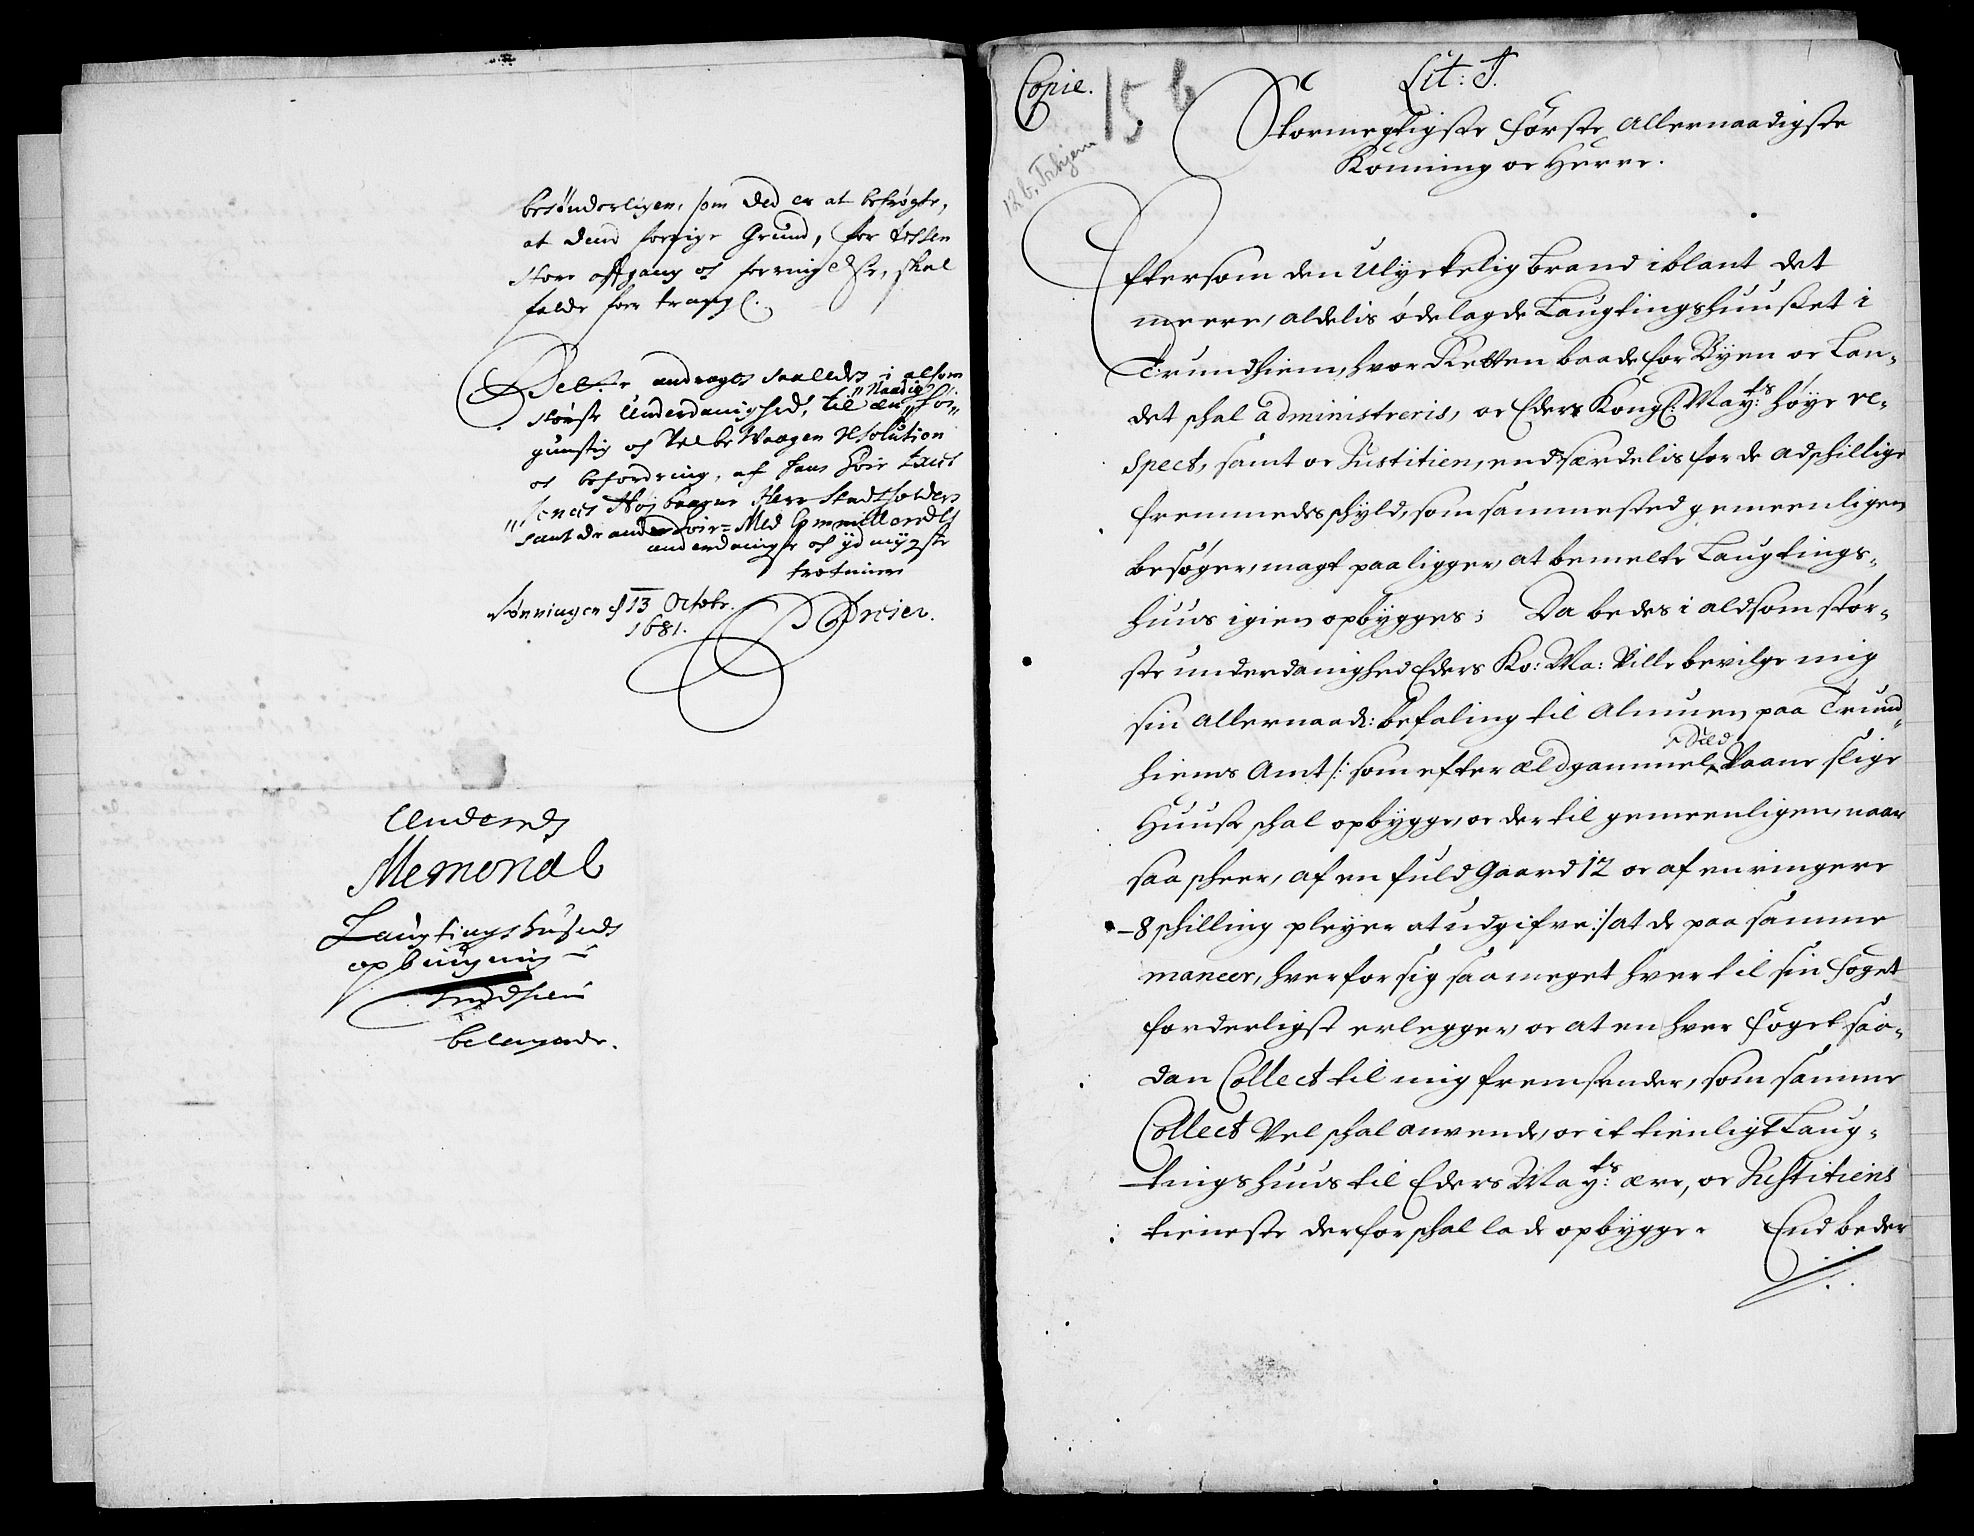 besønderligen, som ded er at befrøgte,
at dend forrige Grund, for
store afgang og forringelse, skal
falde
Dette andrages saaledes i alsom
største Underdanighed, til en
Naadig
gunstig og Velbe Waagen Resolution
og befordring, af hans Høie
Herr Stadtholders
samt de andre
underdanigste og ydmygste
Sønningen d 13 Octobr.
1681.
P Dreier.
Underd
Memorial
Laugtings huseds
opbugning i
Trundhiem
belangende.
Copie.
15 b
12 b. Trhjem
Lit: T.
Stormegtigste Første Allernaadigste
Konning oc Herre.
Eftersom den Ulyckelig brand iblant det
meere, aldelis ødelagde Laugtingshuuset i
Trundhiem, hvor Retten baade for Byen oc Lan-
det schal administreris, oc Eders Kongl: Mayts: høye re-
spect, samt oc Justitien, end særdelis for de adschillige
fremmedes schyld, som sammested gemeenligen
besøger, magt paaligger, at bemelte Laugtings-
huus igien opbygges; Da bedes i aldsom stør-
ste underdanighed Eders Ko: Ma: Ville bevilge mig
sin allernaad: befaling til Almuen paa Trund-
hiems Amt /: som efter ældgammel Sæd Vaane slige
Huuse schal opbygge, oc der til gemeenligen, naar
saa scheer, af en fuld Gaard 12 oc af en ringere
8 schilling pleyer at udgifve :/ at de paa samme
maneer, hver for sig saa meget hver til sin Foget
forderligst erlegger, oc at en hver Foget saa-
dan Collect til mig fremsender, som samme
Collect Vel schal anvende, oc it tienligt Laug-
tingshuus til Eders Mayts: ære, oc Justitiens
tieneste derfor schal lade opbygge. End beder